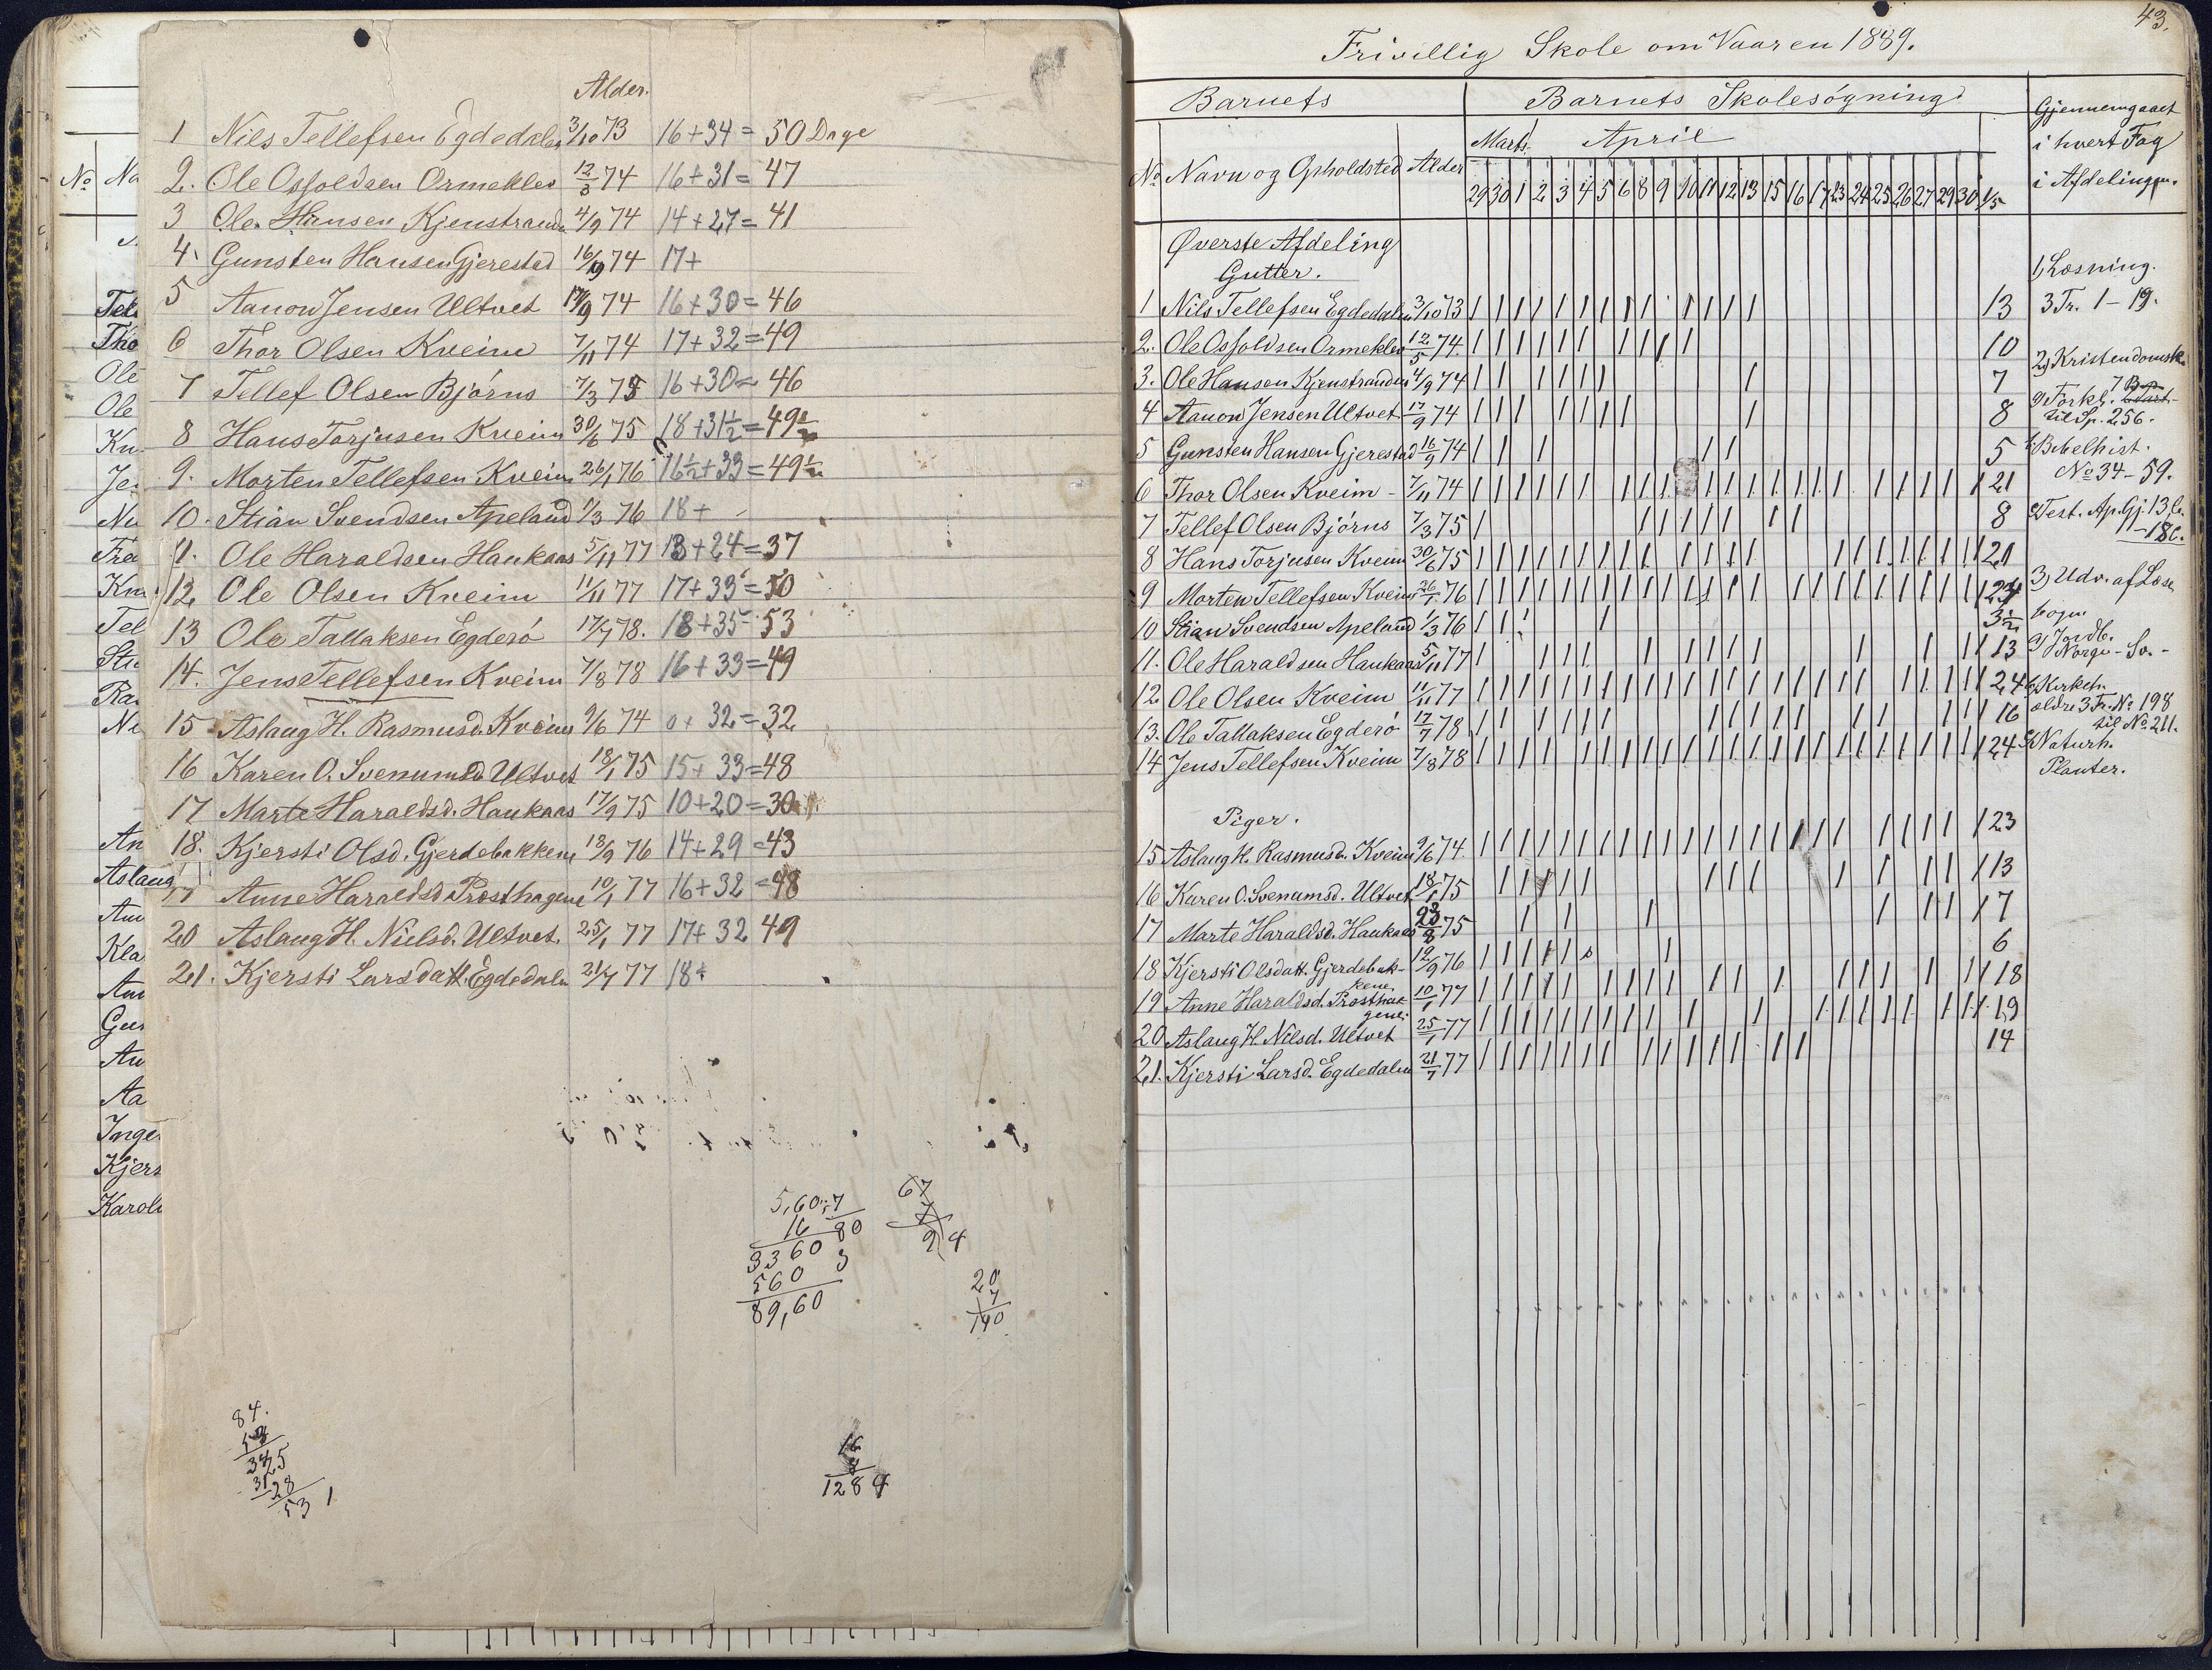 Alder.
1 Nils Tellefsen Egdedalen 3/10 73 16+34 = 50 Dage
2. Ole Osfoldsen Ormeklev 12/5 74 16+31 = 47
3 Ole Hansen Kjenstranden 4/9 74 14+27 = 41
4. Gunsten Hansen Gjerestad 16/9 74 17+
5 Aanon Jensen Ultvet 17/9 74 16+30 = 46
6 Thor Olsen Kveim 7/11 74 17+32 = 49
7 Tellef Olsen Bjórns 7/3 75 16+30 = 46
8 Hans Torjusen Kveim 30/6 75 18+31½ = 49½
9. Morten Tellefsen Kveim 26/1 76 16½+33 = 49½
10. Stian Svendsen Apeland 1/3 76 18+
11. Ole Haraldsen Haukaas 5/11 77 13+24 = 37
12. Ole Olsen Kveim 11/11 77 17+33 = 50
13 Ole Tallaksen Egderó 17/7 78. 18+35 = 53
14. Jens Tellefsen Kveim 7/8 78 16+33 = 49
15 Aslaug H. Rasmusd. Kveim 9/6 74 0+ 32 = 32
16 Karen O. Svenumsd. Ultvet 18/1 75 15+33 = 48
17 Marte Haraldsd. Haukaas 17/9 75 10+20 = 30
18. Kjersti Olsd. Gjerdebakkene 13/9 76 14+29 = 43
19 Anne Haraldsd. Prosthagene 10/1 77 16+32 = 48
20 Aslaug H. Nielsd. Ultvet. 25/1 77 17+ 32 49
21. Kjersti Larsdatt. Egdedalen 21/7 77 18+
5,60:7
16 80
3360 3
560
89,60
67
7
20
7
140
84.
53 1
16
8
128 4
No Na
Ole
Ole
Kn
Je
Tel
Sti
Ra
An
Aslaug
Kla
Gu
Aa
Inge
Kjers
Karol
43.
Frivillig Skole om Vaaren 1889.
Barnets Barnets Skolesógning Gjennemgaaet
i hvert Fag
i Afdelingen.
Marts. April
No Navn og Opholdsted Alder 29 30 1 2 3 4 5 6 8 9 10 11 12 13 15 16 17 23 24 25 26 27 29 30 1/5
Øverste Afdeling
Gutter.
1 Nils Tellefsen Egdedalen 3/10 73 | | | | | | | | | | | | | 13
2. Ole Osfoldsen Ormeklev 12/5 74. | | | | | | | | | | 10
3. Ole Hansen Kjenstranden 4/9 74 | | | | | | | 7
4 Aanon Jensen Ultvet 17/9 74 | | | | | | | | 8
5 Gunsten Hansen Gjerestad 16/9 74 | | | | | 5
6 Thor Olsen Kveim - 7/11 74 | | | | | | | | | | | | | | | | | | | | | 21
7 Tellef Olsen Bjórns 7/3 75 | | | | | | | | 8
8 Hans Torjusen Kveim 30/6 75 | | | | | | | | | | | | | | | | | | | | | 21
9 Morten Tellefsen Kveim 26/1 76 | | | | | | | | | | | | | | | | | | | | | | | | 24
10 Stian Svendsen Apeland 1/3 76 | | | | 3½
11. Ole Haraldsen Haukaas 5/11 77 | | | | | | | | | | | | | 13
12 Ole Olsen Kveim 11/11 77 | | | | | | | | | | | | | | | | | | | | | | | | 24
13. Ole Tallaksen Egderó 17/7 78 | | | | | | | | | | | | | | | | 16
14 Jens Tellefsen Kveim 7/8 78 | | | | | | | | | | | | | | | | | | | | | | | | 24
Piger.
15 Aslaug H. Rasmusd. Kveim 9/6 74. | | | | | | | | | | | | | | | | | | | | | | | 23
16 Karen O. Svenumsd. Ultvet 18/1 75 | | | | | | | | | | | | | 13
17 Marte Haraldsd. Haukaas 75 | | | | | | | 7
18 Kjersti Olsdatt. Gjerdebak- 76 | | | | | | 6
kene
19 Anne Haraldsd. Prostha- 10/1 77 | | | | | | | | | | | | | | | | | | 18
gene.
20 Aslaug H. Nilsd. Ultvet 25/1 77 | | | | | | | | | | | | | | | | | | | 19
21. Kjersti Larsd. Egdedalen 21/7 77 | | | | | | | | | | | | | | 14
1) Læsning.
3 Tr. 1 - 19.
2) Kristendomsk.
a) Forkl. 7 Bøn
til Sp. 256.
b) Bibelhist.
No 34 - 59.
c) Test. Ap. Gj. 13 C.
- 18 C.
3) Udv. af Læse
bogen
a) Jordb.
Norge - Sv. -
b) Kirkeh.
ældre 3 Tr. No 198
til No 211.
c) Naturh.
Planter.